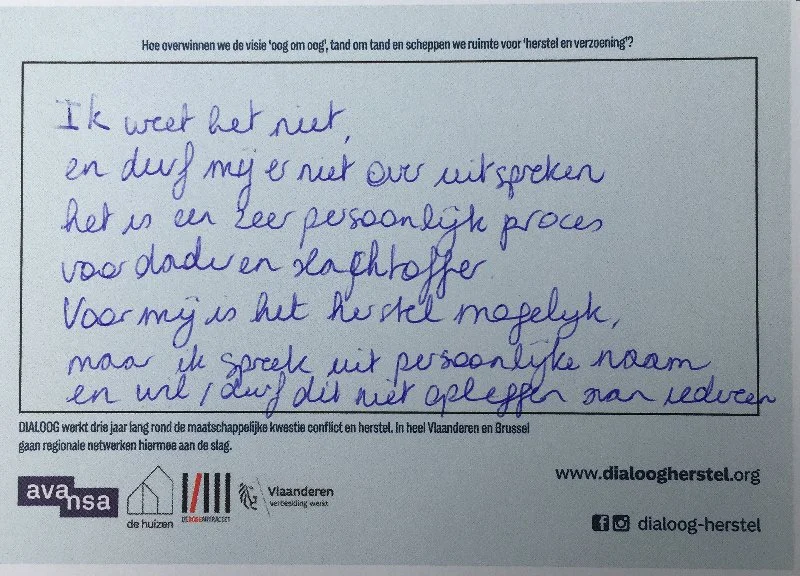 Hoe overwinnen we de visie 'oog om oog', tand om tand en scheppen we ruimte voor 'herstel en verzoening'?
Ik weet het niet,
en durf mij er niet over uitspreken
het is een zeer persoonlijk proces
voor dader en slachtoffer
Voor mij is het herstel mogelijk,
maar ik spreek uit persoonlijke naam
en wil / durf dit niet opleggen aan iedereen
DIALOOG werkt drie jaar lang rond de maatschappelijke kwestie conflict en herstel. In heel Vlaanderen en Brussel
gaan regionale netwerken hiermee aan de slag.
avansa
de huizen
DERODEANTRACIET
Vlaanderen
verbeelding werkt
www.dialoogherstel.org
dialoog-herstel